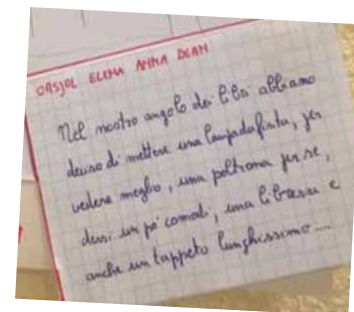 ORSJOL ELENA ANNA DEAN
Nel nostro angolo dei libri abbiamo
deciso di mettere una lampada finta, per
vedere meglio, una poltrona per se,
dersi un po' comodi, una libreria e
anche un tappeto lunghissimo...